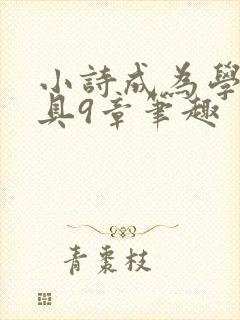 小詩成為學
具9章筆趣
青棗枝